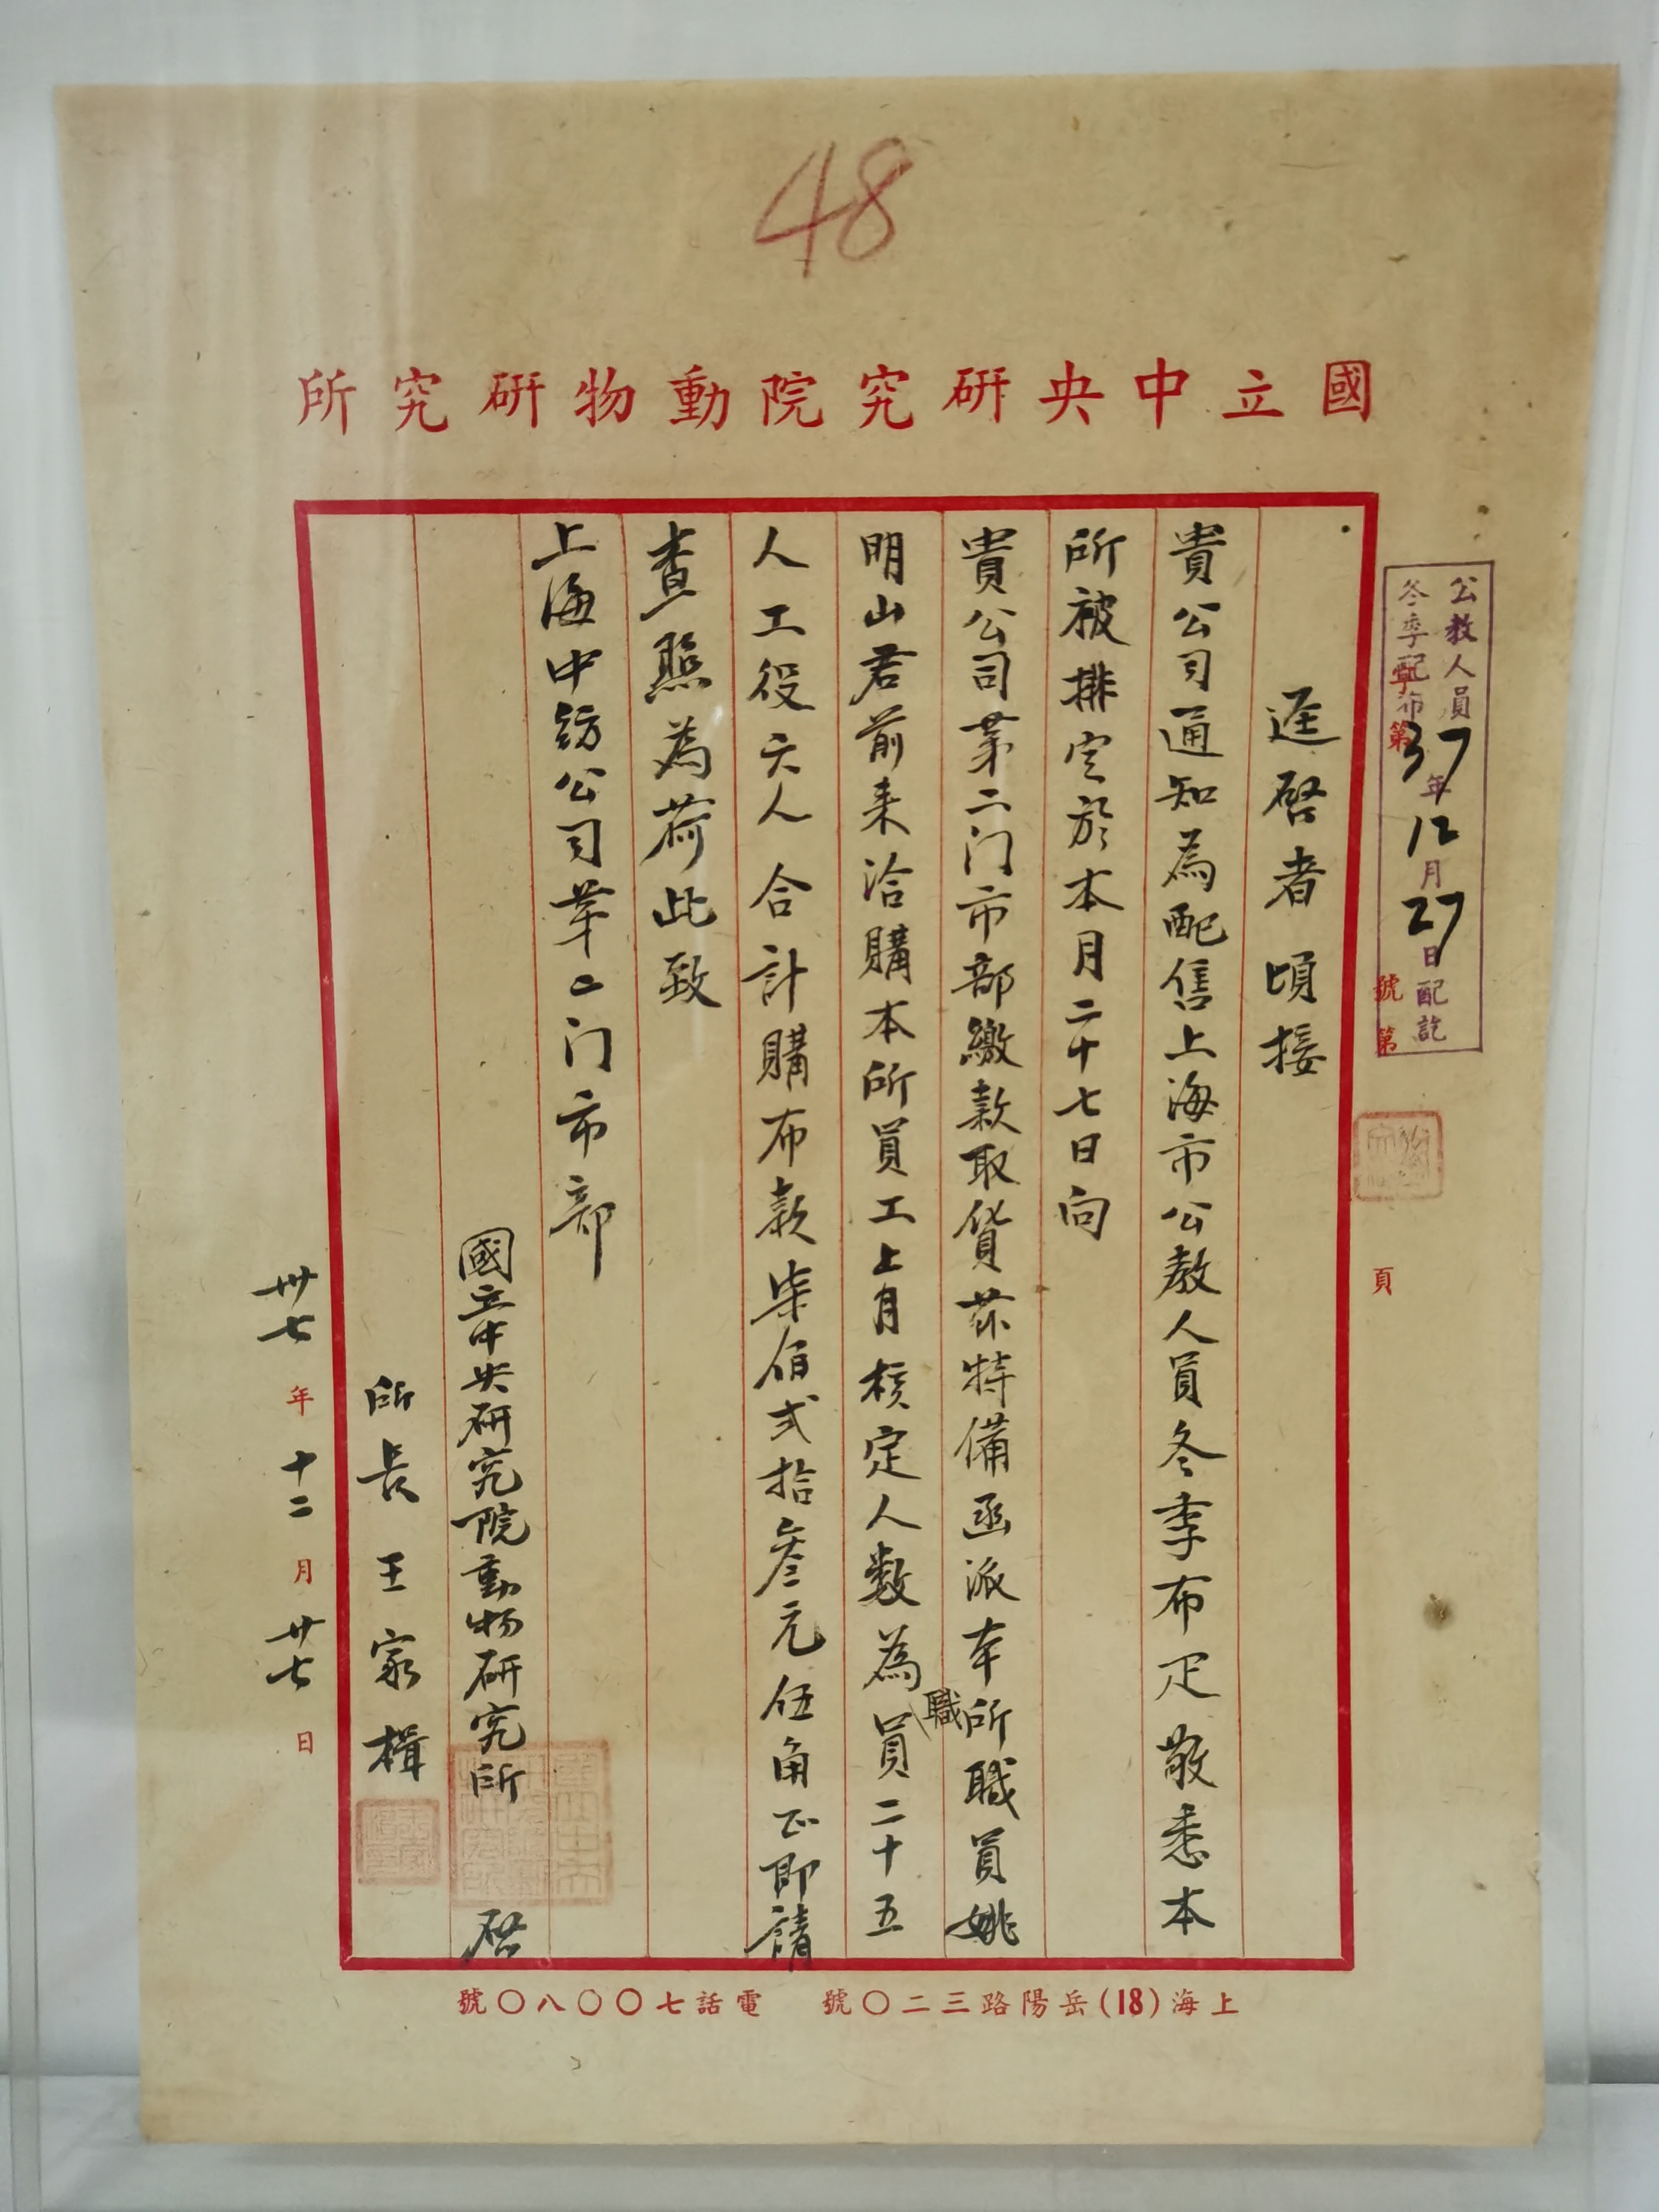 48
國立中央研究院動物研究所
公教人員
冬季配布
37年12月27日配訖
字第
號第
頁
逕啓者頃接
貴公司通知為配售上海市公教人員冬季布疋敬悉本
所被排定於本月二十七日向
貴公司第二门市部繳款取貨茲特備函派本所職員姚
明山君前来洽購本所員工上月核定人数為職員二十五
人工役六人合計購布款柒佰弍拾叁元伍角正即請
查照為荷此致
上海中紡公司第二门市部
國立中央研究院動物研究所
啓
所長王家楫
卅七年十二月廿七日
上海(18)岳陽路三二〇號 電話七〇〇八〇號